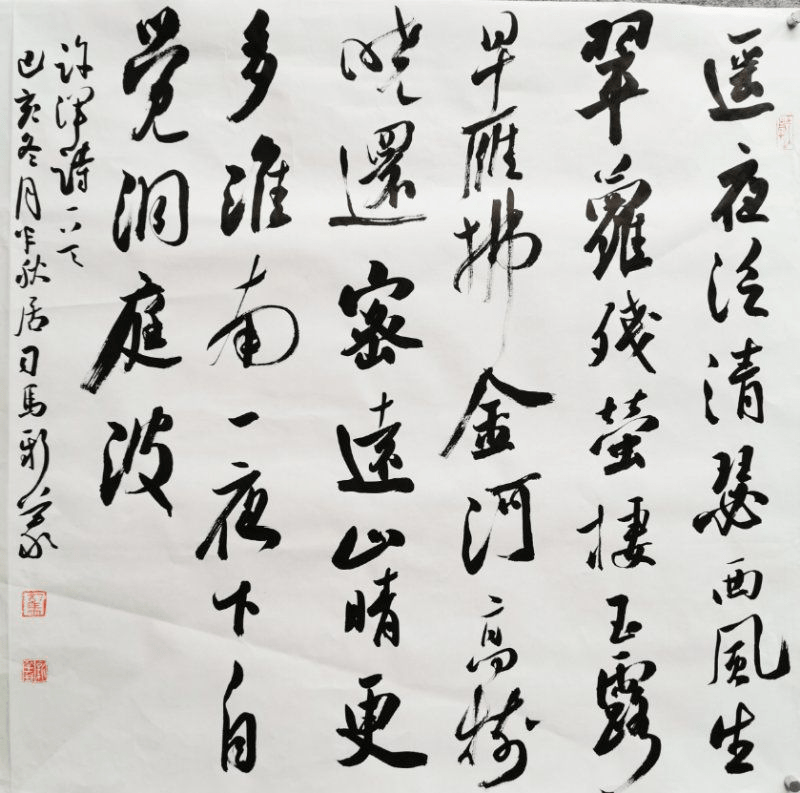 遥夜泛清瑟西風生
翠蘿残螢棲玉露
早雁拂金河高樹
晓還密遠山晴更
多淮南一夜下自
觉洞庭波
許渾詩一首
己亥冬月秋居司馬